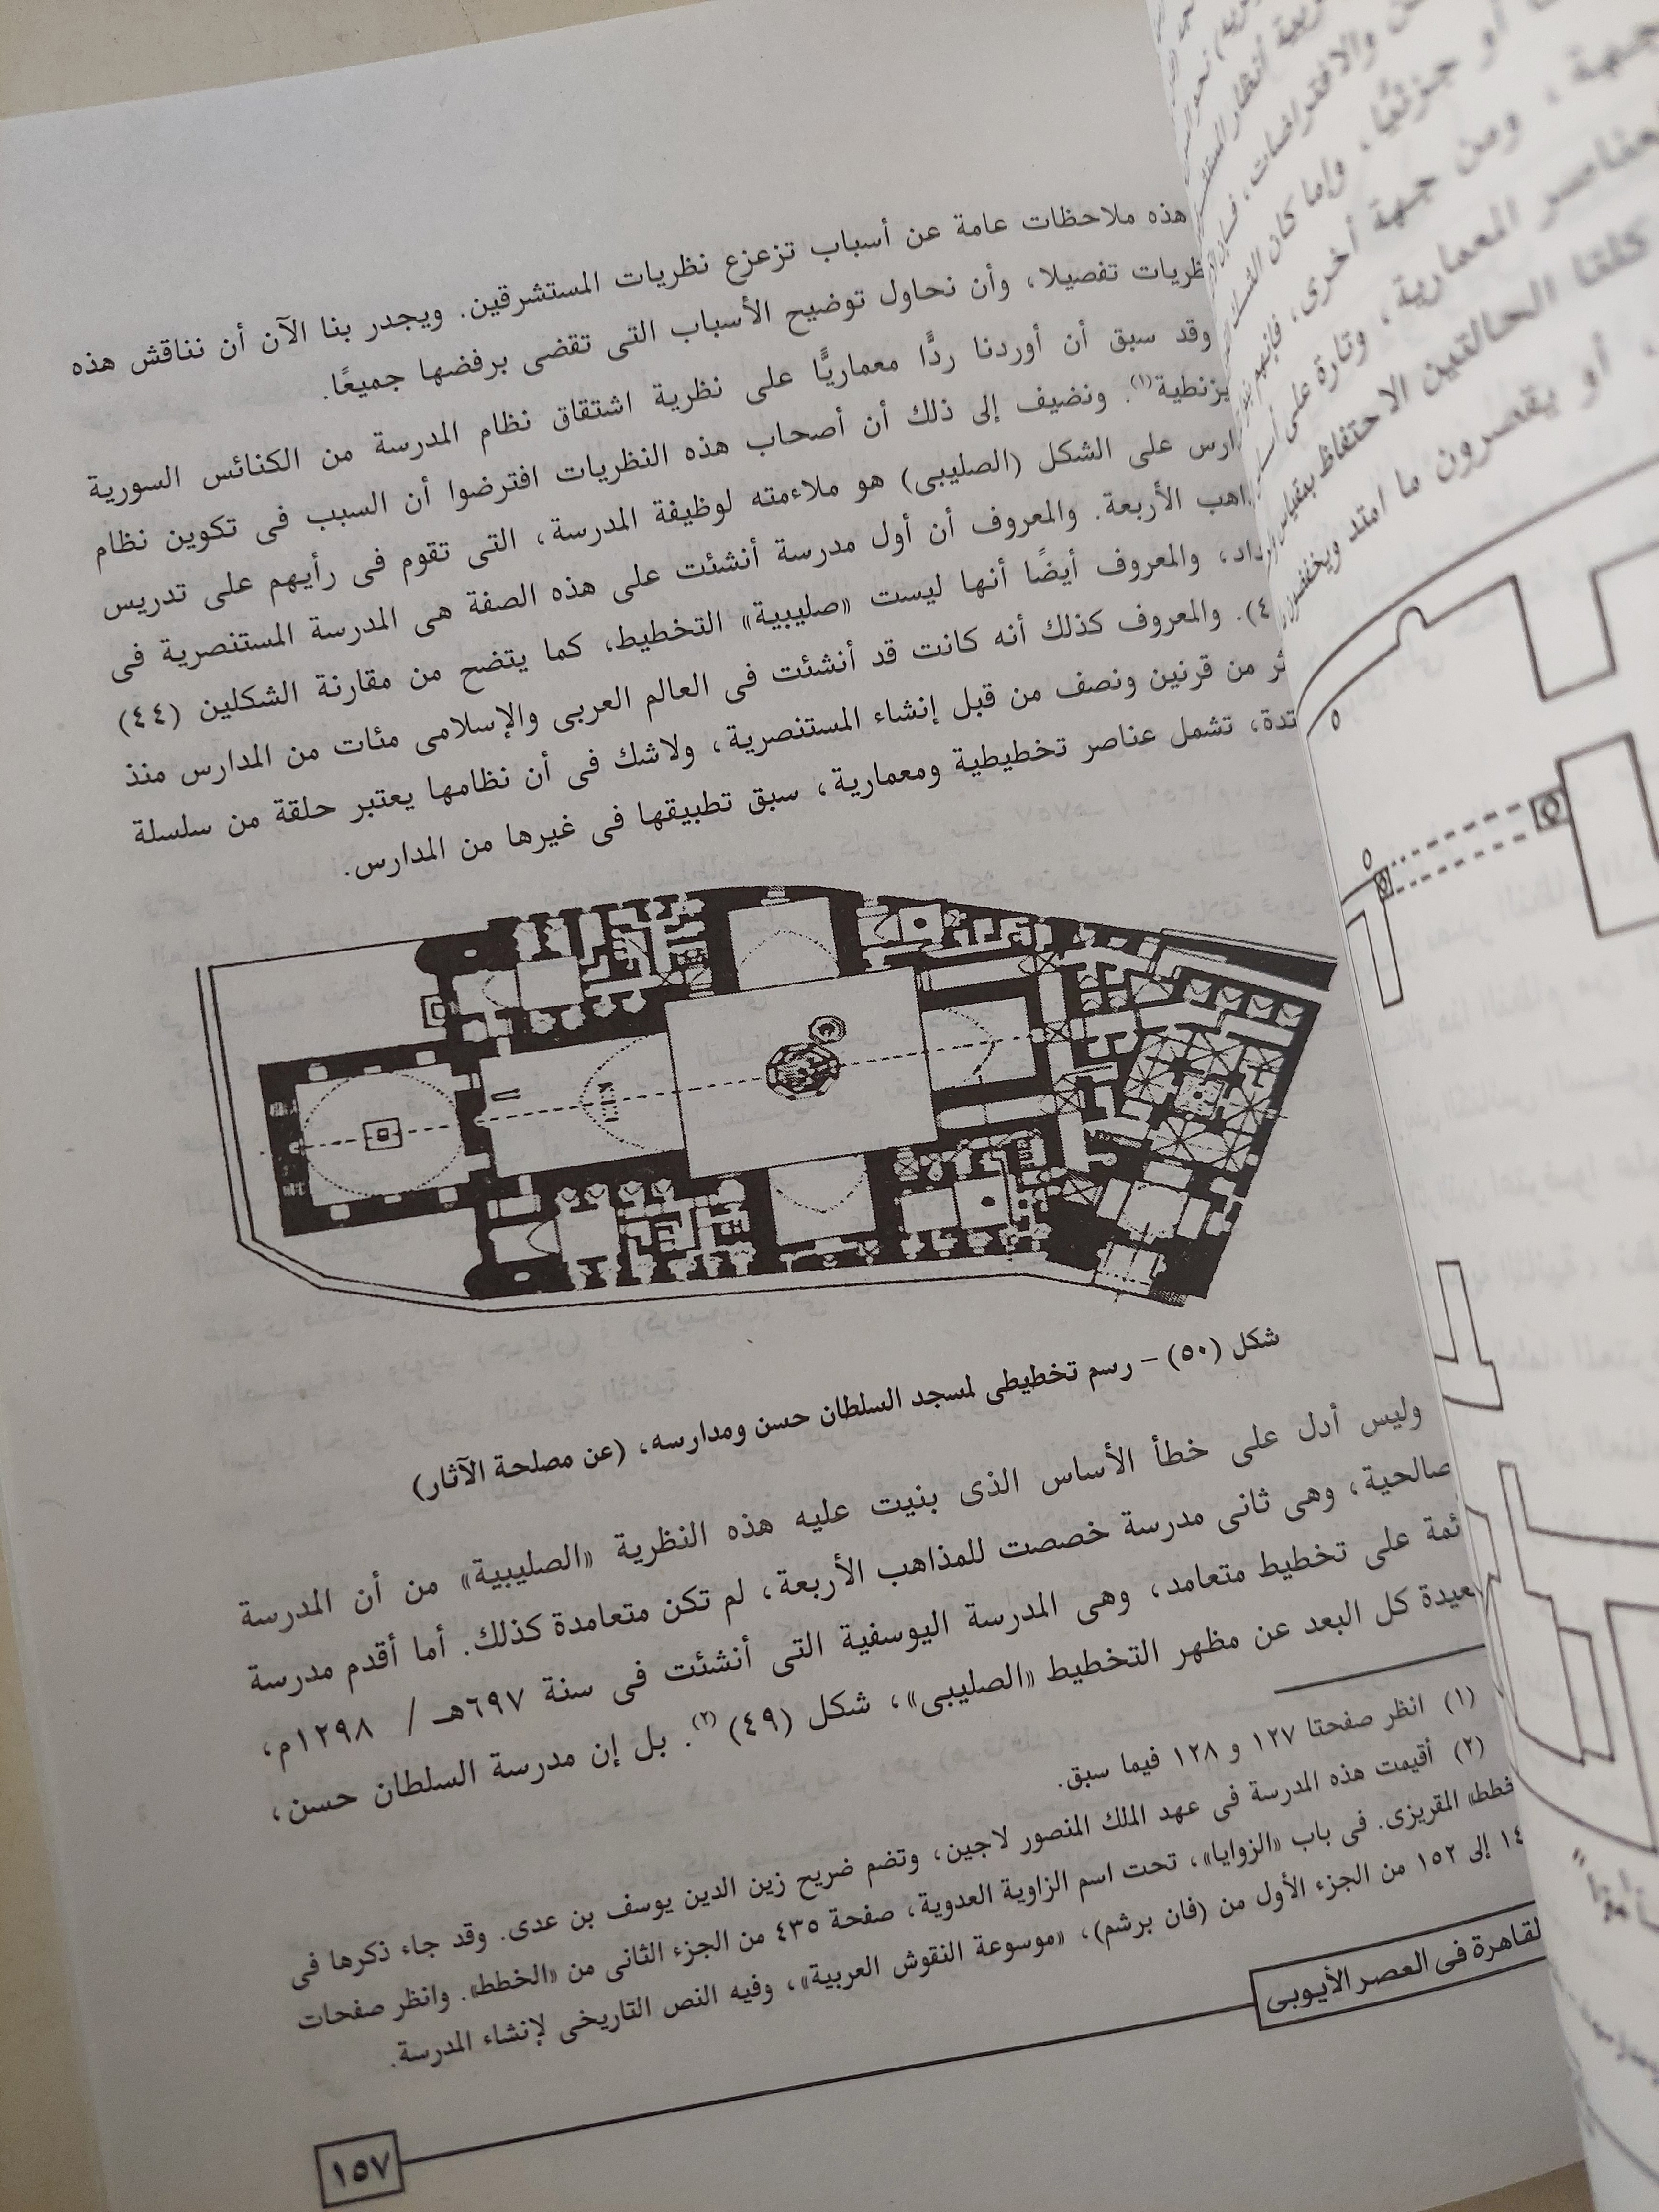 هذه ملاحظات عامة عن أسباب تزعزع نظريات المستشرقين. ويجدر بنا الآن أن نناقش هذه
ظريات تفصيلا، وأن نحاول توضيح الأسباب التى تقضى برفضها جميعًا.
وقد سبق أن أوردنا ردًّا معماريًّا على نظرية اشتقاق نظام المدرسة من الكنائس السورية
يزنطية(١). ونضيف إلى ذلك أن أصحاب هذه النظريات افترضوا أن السبب فى تكوين نظام
ارس على الشكل (الصليبى) هو ملاءمته لوظيفة المدرسة، التى تقوم فى رأيهم على تدريس
اهب الأربعة. والمعروف أن أول مدرسة أنشئت على هذه الصفة هى المدرسة المستنصرية فى
داد، والمعروف أيضًا أنها ليست «صليبية» التخطيط، كما يتضح من مقارنة الشكلين (٤٤)
٤). والمعروف كذلك أنه كانت قد أنشئت فى العالم العربى والإسلامى مئات من المدارس منذ
ثر من قرنين ونصف من قبل إنشاء المستنصرية، ولاشك فى أن نظامها يعتبر حلقة من سلسلة
تدة، تشمل عناصر تخطيطية ومعمارية، سبق تطبيقها فى غيرها من المدارس.
شكل (٥٠) – رسم تخطيطى لمسجد السلطان حسن ومدارسه، (عن مصلحة الآثار)
وليس أدل على خطأ الأساس الذى بنيت عليه هذه النظرية «الصليبية» من أن المدرسة
صالحية، وهى ثانى مدرسة خصصت للمذاهب الأربعة، لم تكن متعامدة كذلك. أما أقدم مدرسة
ئمة على تخطيط متعامد، وهى المدرسة اليوسفية التى أنشئت فى سنة ٦٩٧هـ / ١٢٩٨م،
عيدة كل البعد عن مظهر التخطيط «الصليبى»، شكل (٤٩)(٢). بل إن مدرسة السلطان حسن،
(١) انظر صفحتا ١٢٧ و ١٢٨ فيما سبق.
(٢) أقيمت هذه المدرسة فى عهد الملك المنصور لاجين، وتضم ضريح زين الدين يوسف بن عدى. وقد جاء ذكرها فى
خطط» المقريزى. فى باب «الزوايا»، تحت اسم الزاوية العدوية، صفحة ٤٣٥ من الجزء الثانى من «الخطط». وانظر صفحات
١٤ إلى ١٥٢ من الجزء الأول من (فان برشم)، «موسوعة النقوش العربية»، وفيه النص التاريخى لإنشاء المدرسة.
لقاهرة فى العصر الأيوبى
١٥٧
والافتراضات،
أو جزئيًّا، وإما كان
جهة، ومن جهة أخرى، فإنهم
العناصر المعمارية، وتارة على
كلتا الحالتين الاحتفاظ
أو يقصرون ما امتد ويخفضون
٥
٥